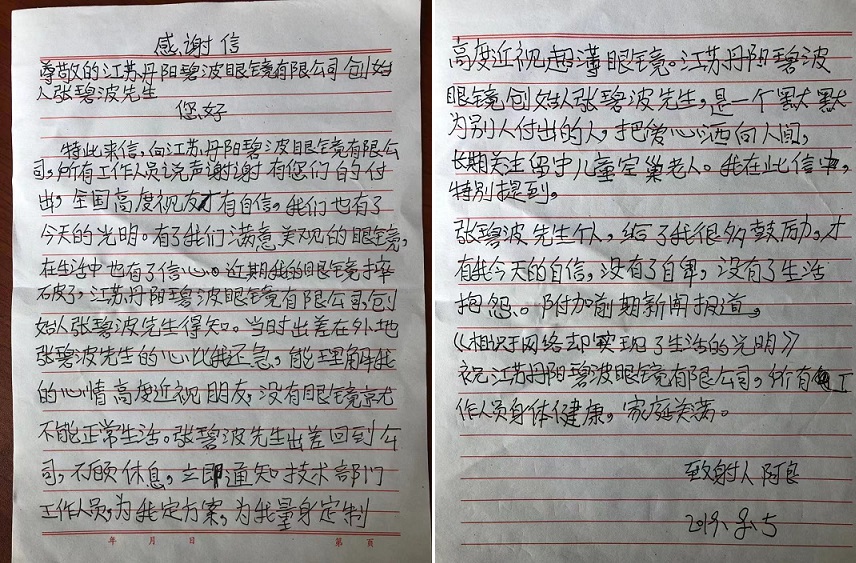 感谢信
尊敬的江苏丹阳碧波眼镜有限公司创始
人张碧波先生
您好
特此来信，向江苏丹阳碧波眼镜有限公
司，所有工作人员说声谢谢 有您们的付
出，全国高度视友才有自信，我们也有了
今天的光明。有了我们满意美观的眼镜，
在生活中也有了信心。近期我的眼镜摔
破了，江苏丹阳碧波眼镜有限公司，创
始人张碧波先生得知。当时出差在外地
张碧波先生的心比我还急，能理解我
的心情 高度近视朋友，没有眼镜就
不能正常生活。张碧波先生出差回到公
司，不顾休息，立即通知技术部门
工作人员，为我定方案，为我量身定制
年 月 日 第 页
高度近视超薄眼镜。江苏丹阳碧波
眼镜创始人张碧波先生，是一个默默
为别人付出的人，把爱心洒向人间，
长期关注留守儿童空巢老人。我在此信中，
特别提到，
张碧波先生个人，给了我很多鼓励，才
有我今天的自信，没有了自卑，没有了生活
抱怨、。附加前期新闻报道，
《相识于网络却实现了生活的光明》
祝江苏丹阳碧波眼镜有限公司，所有工
作人员身体健康，家庭美满。
致谢人 阿良
2019、5